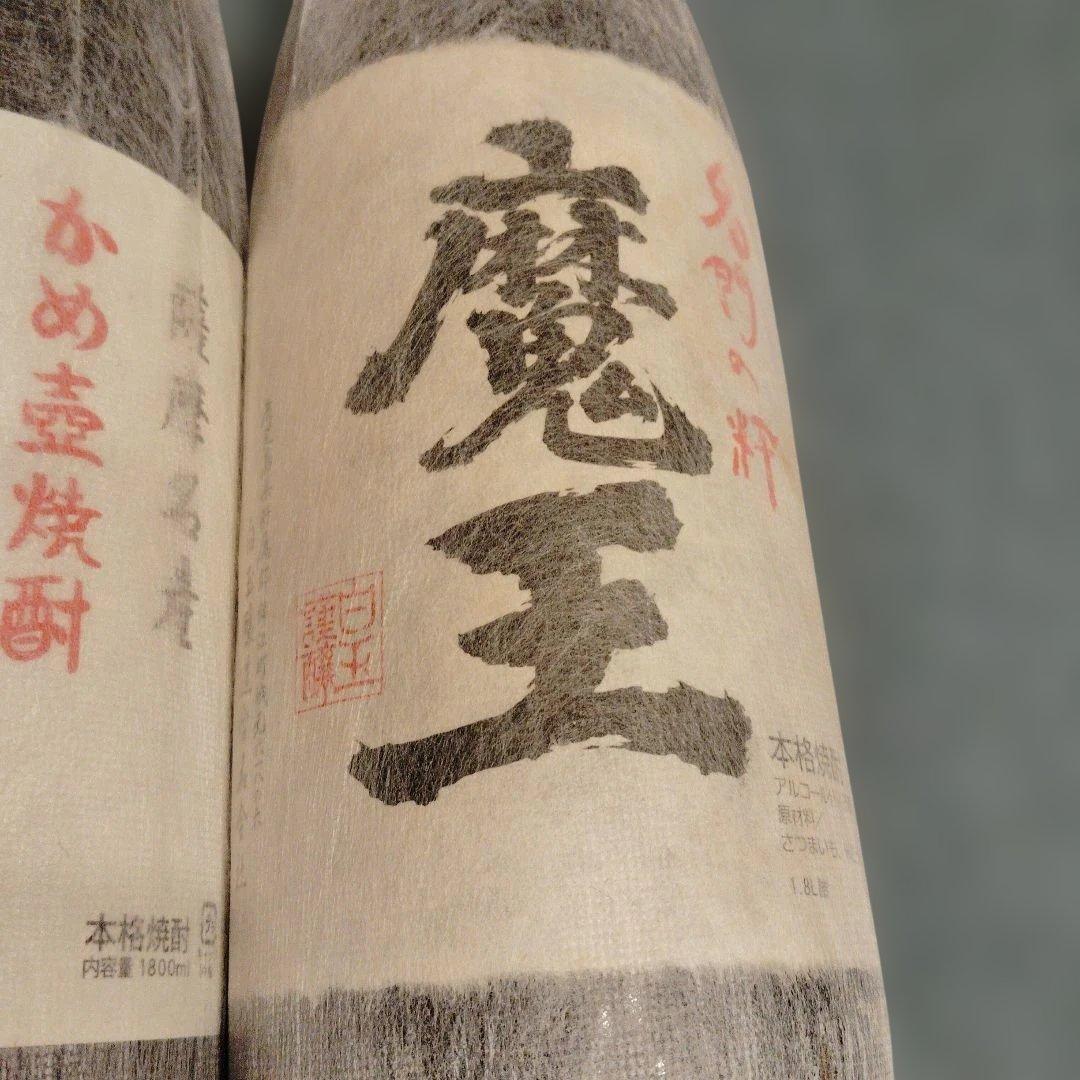 魔王
名門の粋
白玉
謹醸
本格焼酎
アルコール
原材料/
さつまいも、
1.8L詰
かめ壺焼酎
薩摩名産
本格焼酎
内容量 1800ml